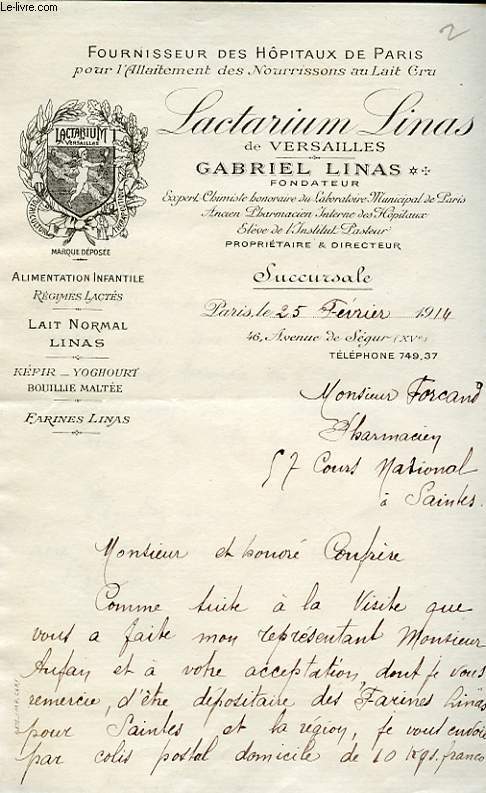 Le-livre.com
2
FOURNISSEUR DES HÔPITAUX DE PARIS
pour l'Allaitement des Nourrissons au Lait Cru
LACTARIUM
VERSAILLES
MARQUE DÉPOSÉE
Lactarium Linas
de VERSAILLES
GABRIEL LINAS
FONDATEUR
Expert Chimiste honoraire du Laboratoire Municipal de Paris
Ancien Pharmacien Interne des Hôpitaux
Elève de l'Institut Pasteur
PROPRIÉTAIRE & DIRECTEUR
ALIMENTATION INFANTILE
RÉGIMES LACTÉS
LAIT NORMAL
LINAS
KÉFIR _ YOGHOURT
BOUILLIE MALTÉE
FARINES LINAS
Succursale
Paris, le 25 Février 1914
46, Avenue de Ségur (XVe)
TÉLÉPHONE 749,37
Monsieur Forcand
Pharmacien
57 Cours National
à Saintes.
Monsieur et honoré Confrère
Comme suite à la Visite que
vous a faite mon représentant Monsieur
Aufan et à votre acceptation, dont je vous
remercie, d'être dépositaire des Farines Linas
pour Saintes et la région, je vous envoie
par colis postal domicile de 10 kgs. franco